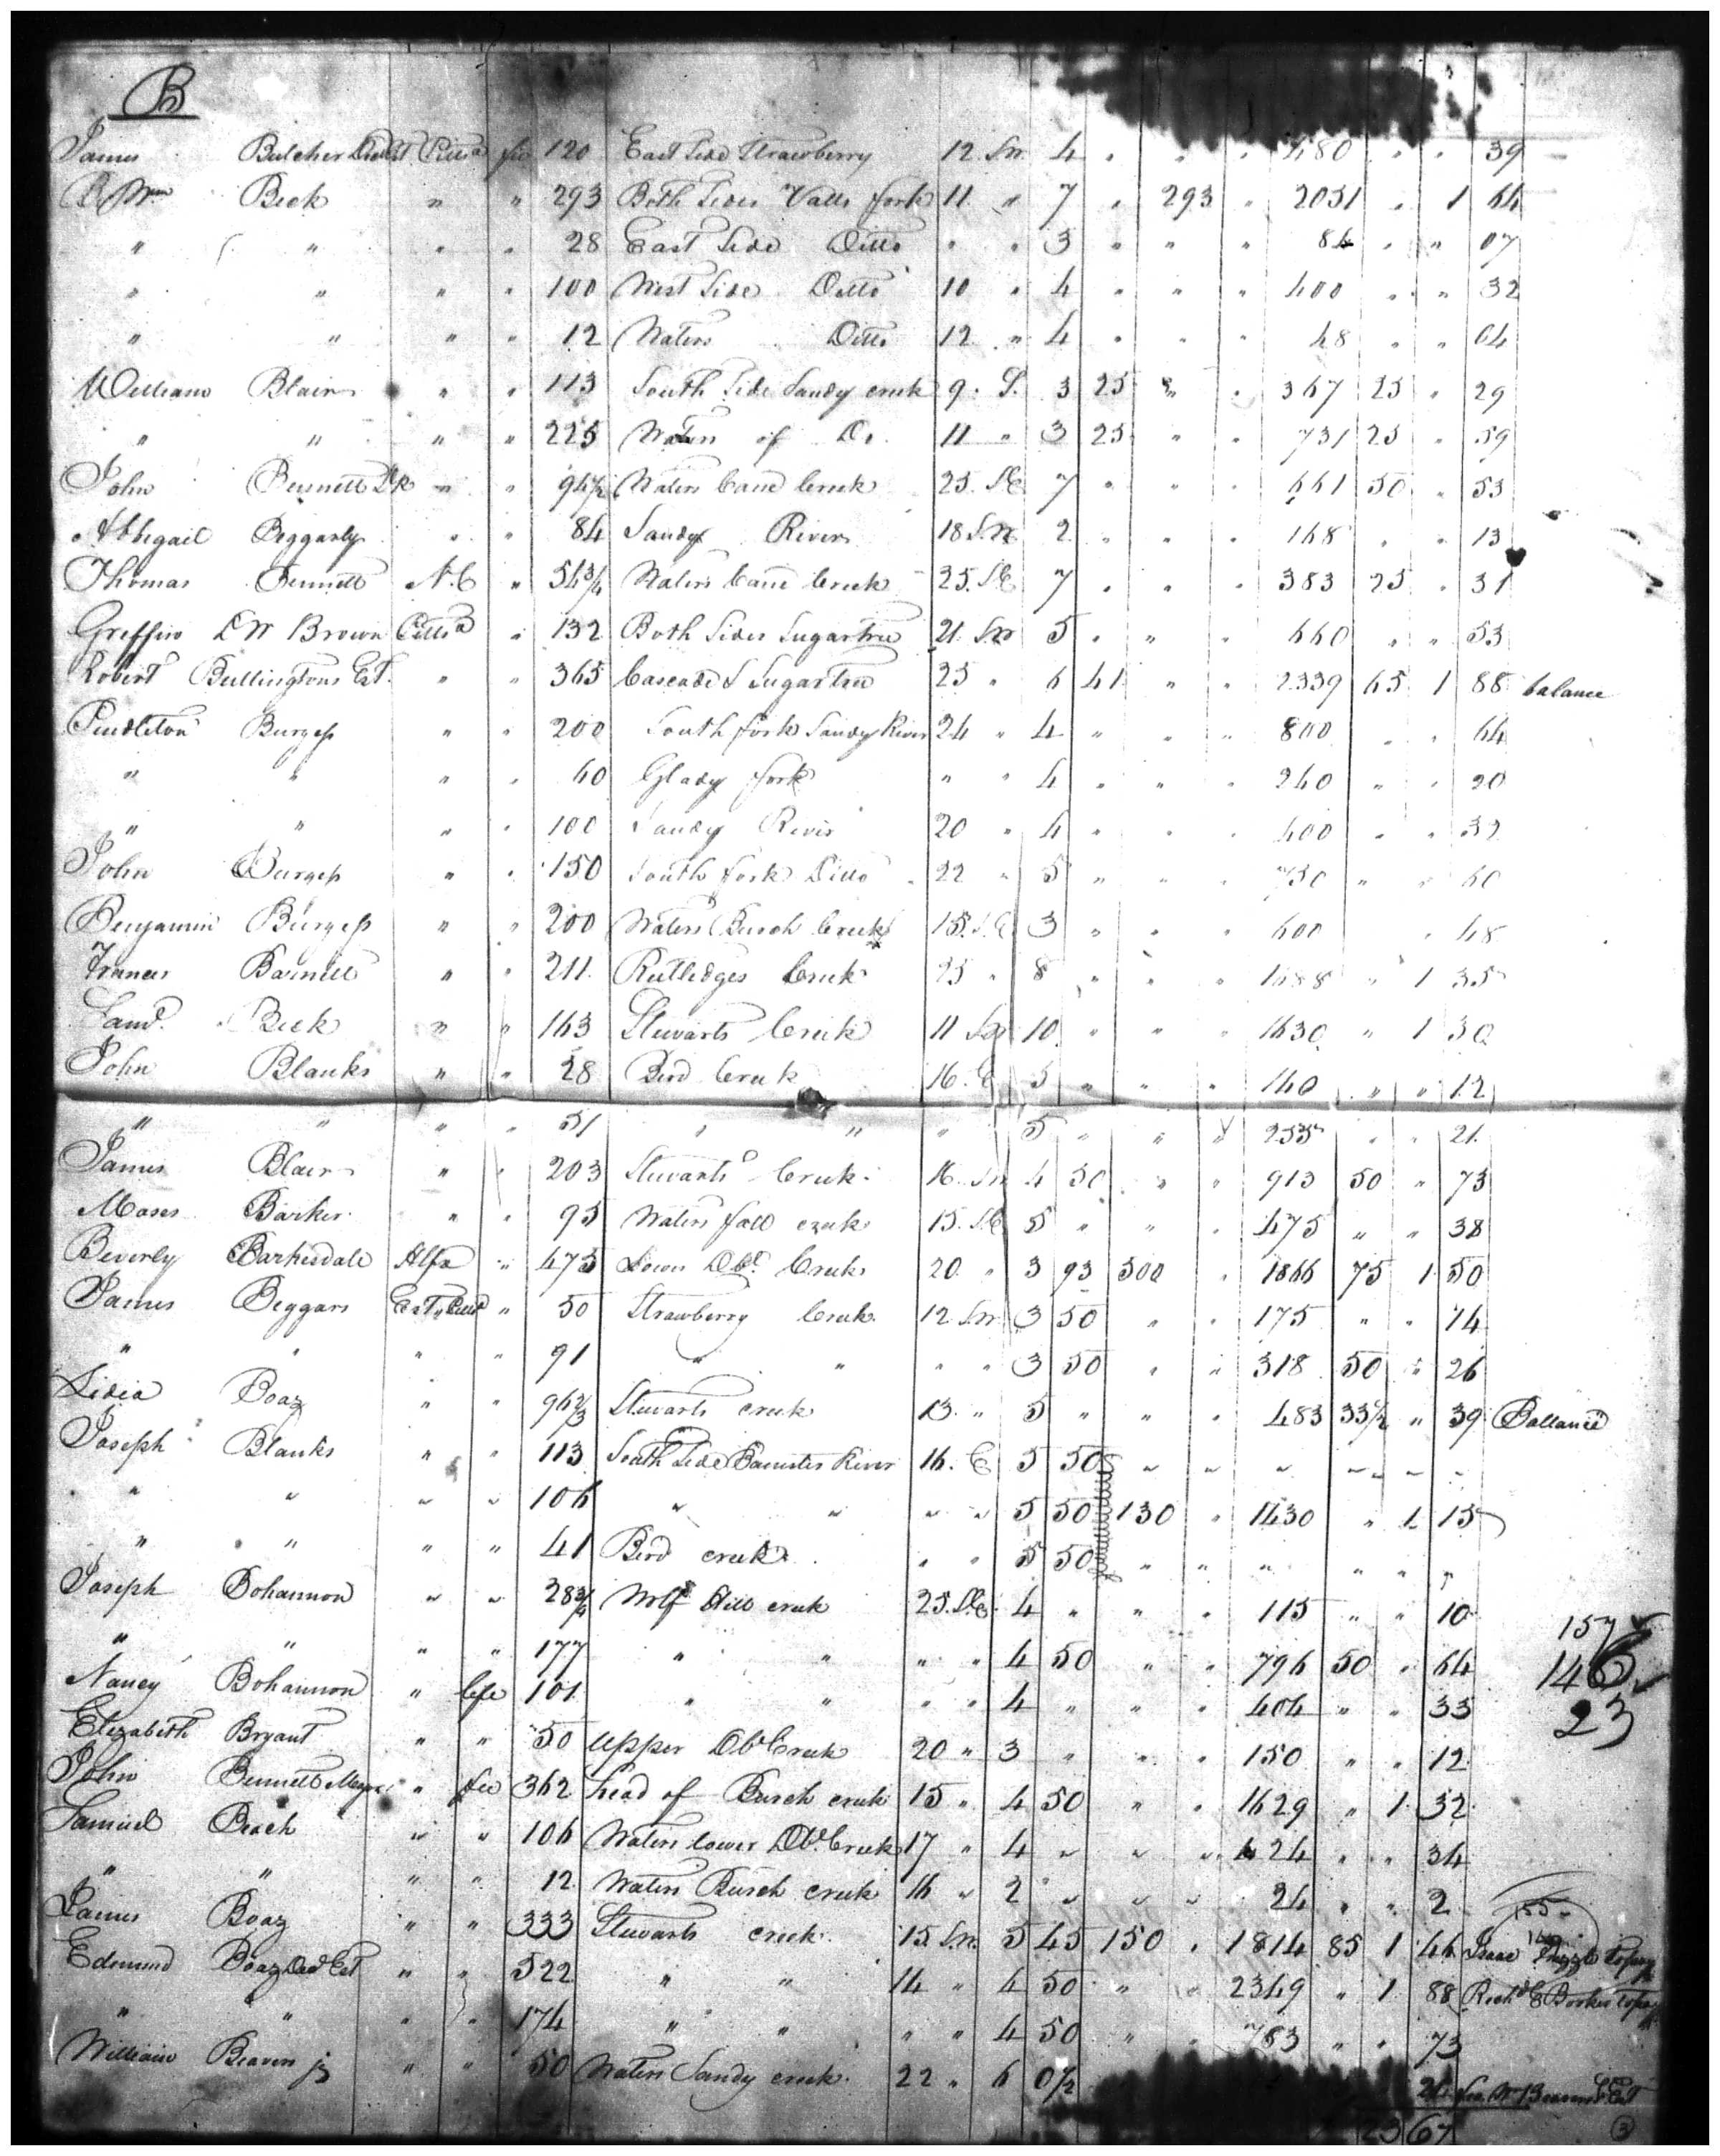 B
James Belcher Pitts.a fee 120 East Side Strawberry 12 S.W. 4 " " " 480 " " 39
Wm Beck " " 293 Both Sides Valls fork 11 " 7 " 293 " 2051 " 1 64
" " " " 28 East Side Ditto " " 3 " " " 84 " " 07
" " " " 100 West Side Ditto 10 " 4 " " " 400 " " 32
" " " " 12 Waters Ditto 12 " 4 " " " 48 " " 04
William Blair " " 113 South Side Sandy creek 9 S. 3 25 " " 367 25 " 29
" " " " 225 Waters of Do. 11 " 3 25 " " 731 25 " 59
John Bennett " " 94½ Waters Cane Creek 25 S.E 7 " " " 661 50 " 53
Abbegail Beggarly " " 84 Sandy River 18 S.W. 2 " " " 168 " " 13
Thomas Bennett N.C " 54¾ Waters Cane Creek 25 S.E 7 " " " 383 25 " 31
Greffin L W Brown Pitts.a " 132 Both Sides Sugartree 21 S.W 5 " " " 660 " " 53
Robert Bullingtons Est. " " 365 Cascade & Sugartree 25 " 6 41 " " 2339 65 1 88 balance
Pendleton Burgess " " 200 South fork Sandy River 24 " 4 " " " 800 " " 64
" " " " 60 Glady fork " " 4 " " " 240 " " 20
" " " " 100 Sandy River 20 " 4 " " " 400 " " 32
John Burgess " " 150 South fork Ditto 22 " 5 " " " 750 " " 60
Benjamin Burgess " " 200 Waters Burch Creek 15 S.E 3 " " " 600 " 48
Frances Barnett " " 211 Rutledges Creek 25 " 8 " " " 1688 " 1 35
Saml. Beck " " 163 Stewarts Creek 11 S.W 10 " " " 1630 " 1 30
John Blanks " " 28 Bird Creek 16 E 5 " " " 140 " " 12
" " " " 51 " " " 5 " " " 255 " " 21
James Blair " " 203 Stewarts Creek 16 S.W 4 50 " " 913 50 " 73
Moses Barker " " 95 Waters fall creek 15 S.E 5 " " " 475 " " 38
Beverly Barksdale Hlfx " 475 Lower Dbl. Creek 20 " 3 93 500 " 1866 75 1 50
James Beggars Est. Pitts.a " 50 Strawberry Creek 12 S.W 3 50 " " 175 " " 14
" " " " 91 " " " " 3 50 " " 318 50 " 26
Lidia Boaz " " 96⅔ Stewarts creek 13 " 5 " " " 483 33½ " 39 Ballance
Joseph Blanks " " 113 South Side Banister River 16 E 5 50 " " " " " "
" " " " 106 " " " " 5 50 130 " 1430 " 1 15
" " " " 41 Bird creek " " 5 50 " " " " " "
Joseph Bohannon " " 28¾ Wolf Hill creek 25 S.E 4 " " " 115 " " 10
" " " " 177 " " " " 4 50 " " 796 50 " 64
157
146
Nancy Bohannon " life 101 " " " " 4 " " " 404 " " 33
23
Elizabeth Bryant " " 50 Upper Dbl Creek 20 " 3 " " " 150 " " 12
John Bennett " fee 362 head of Burch creek 15 " 4 50 " " 1629 " 1 32
Samuel Beach " " 106 Waters lower Dbl. Creek 17 " 4 " " " 424 " " 34
" " " " 12 Waters Burch creek 16 " 2 " " " 24 " " 2
155
James Boaz " " 333 Stewarts creek 15 S.W. 5 45 150 " 1814 85 1 46 Isaac to pay
Edmund Boaz Decd Est " " 522 " " 14 " 4 50 " " 2349 " 1 88 Richd Booker to pay
" " " " 174 " " " " 4 50 " " 783 " " 73
William Beavers jr " " 50 Waters Sandy creek 22 " 6 0½ 24 Wm Beavers Est
23 67
3